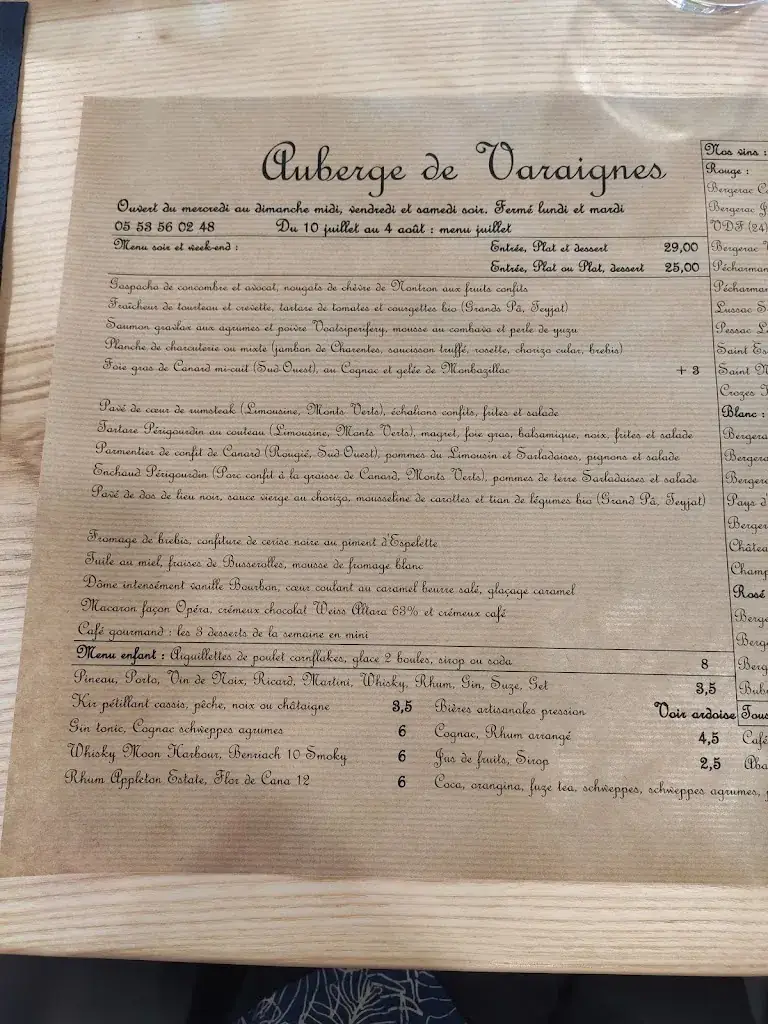 Auberge de Varaignes
Ouvert du mercredi au dimanche midi, vendredi et samedi soir. Fermé lundi et mardi
05 53 56 02 48 Du 10 juillet au 4 août : menu juillet
Menu soir et week-end : Entrée, Plat et dessert 29,00
Entrée, Plat ou Plat, dessert 25,00
Gaspacho de concombre et avocat, nougats de chèvre de Nontron aux fruits confits
Fraîcheur de tourteau et crevette, tartare de tomates et courgettes bio (Grands Pâ, Teyjat)
Saumon gravlax aux agrumes et poivre Voatsiperifery, mousse au combava et perle de yuzu
Planche de charcuterie ou mixte (jambon de Charentes, saucisson truffé, rosette, chorizo cular, brebis)
Foie gras de Canard mi-cuit (Sud-Ouest), au Cognac et gelée de Monbazillac + 3
Pavé de cœur de rumsteak (Limousine, Monts Verts), échalions confits, frites et salade
Tartare Périgourdin au couteau (Limousine, Monts Verts), magret, foie gras, balsamique, noix, frites et salade
Parmentier de confit de Canard (Rougié, Sud Ouest), pommes du Limousin et Sarladaises, pignons et salade
Enchaud Périgourdin (Porc confit à la graisse de Canard, Monts Verts), pommes de terre Sarladaises et salade
Pavé de dos de lieu noir, sauce vierge au chorizo, mousseline de carottes et tian de légumes bio (Grand Pâ, Teyjat)
Fromage de brebis, confiture de cerise noire au piment d'Espelette
Tuile au miel, fraises de Busserolles, mousse de fromage blanc
Dôme intensément vanille Bourbon, cœur coulant au caramel beurre salé, glaçage caramel
Macaron façon Opéra, crémeux chocolat Weiss Altara 63% et crémeux café
Café gourmand : les 3 desserts de la semaine en mini
Menu enfant : Aiguillettes de poulet cornflakes, glace 2 boules, sirop ou soda 8
Pineau, Porto, Vin de Noix, Ricard, Martini, Whisky, Rhum, Gin, Suze, Get 3,5
Kir pétillant cassis, pêche, noix ou châtaigne 3,5 Bières artisanales pression Voir ardoise
Gin tonic, Cognac schweppes agrumes 6 Cognac, Rhum arrangé 4,5
Whisky Moon Harbour, Benriach 10 Smoky 6 Jus de fruits, Sirop 2,5
Rhum Appleton Estate, Flor de Cana 12 6 Coca, orangina, fuze tea, schweppes, schweppes agrumes,
Nos vins :
Rouge :
Bergerac
Bergerac
VDF (24)
Bergerac
Pécharman
Pécharman
Lussac S
Pessac
Saint Es
Saint
Crozes
Blanc :
Bergera
Bergera
Bergera
Pays d'
Berger
Châtea
Champ
Rosé
Berge
Berge
Berg
Bub
Tous
Café
Aba